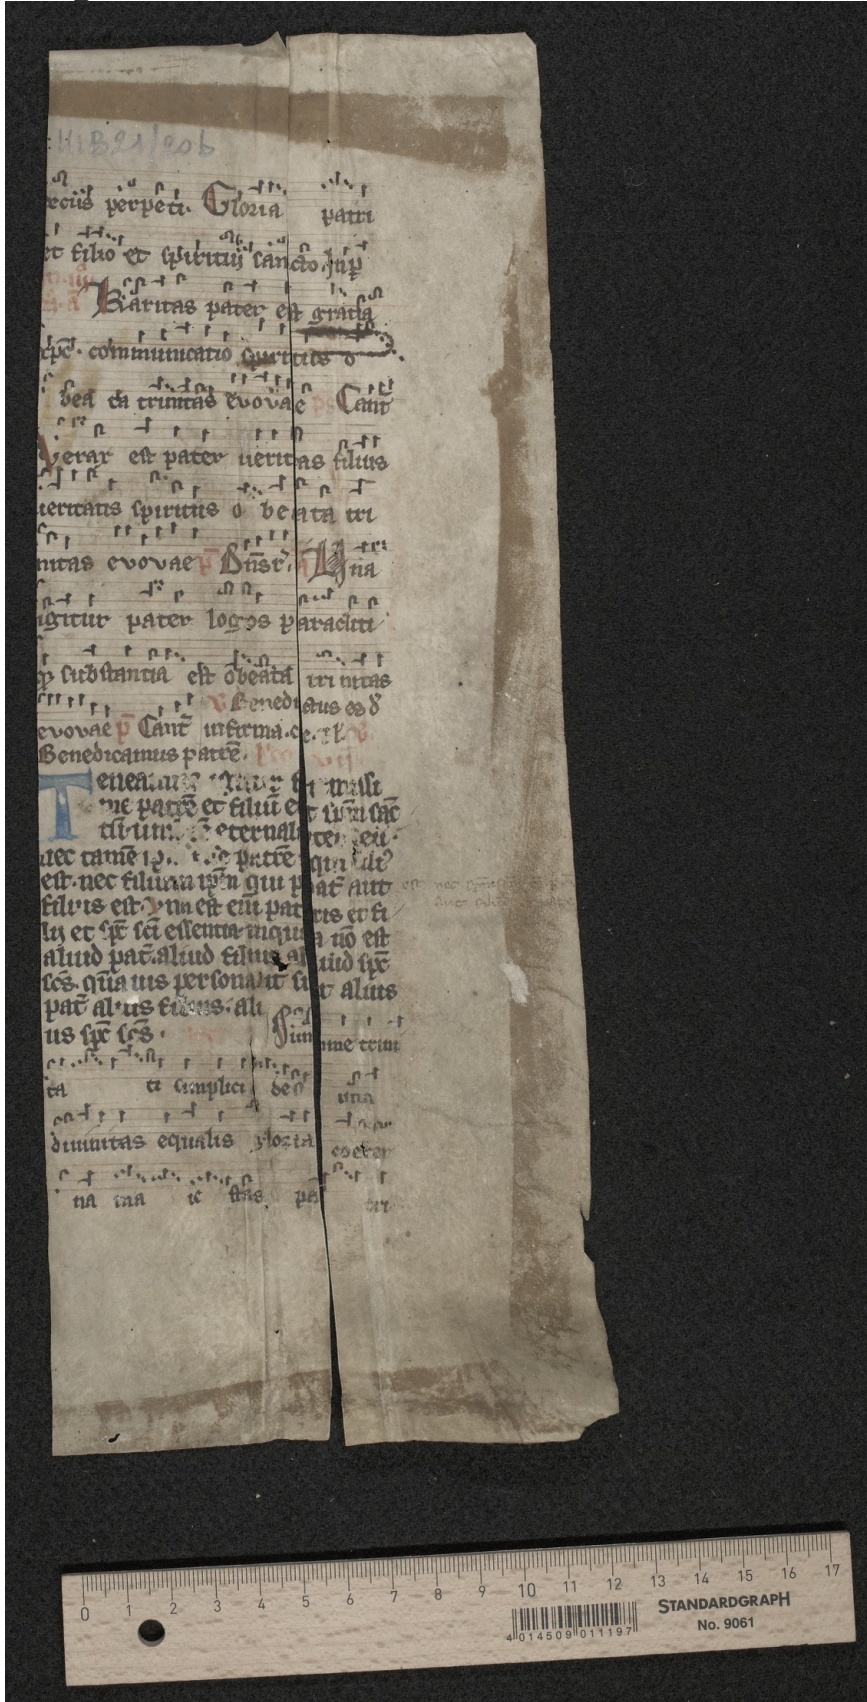 III B 21/206
eciis perpeti. Gloria patri
et filio et spiritui sancto In p
Karitas pater est gratia
xpc. communicatio spiritus o
bea ta trinitas evovae ps Cant
Verax est pater ueritas filius
ueritatis spiritus o beata tri
nitas evovae p Dnst. a Una
igitur pater logos paracliti
q substantia est o beata trinitas
v Benedictus es d
evovae p Cant infirma.ce.
Benedicamus patre.
Tenea
me patre et filiu et spm sac
eternali
nec tame patre qui
est. nec filium ipm qui pat aut
filius est. Vna est eni patris et fi
lii et spc sci essentia inqua no est
aliud pat. aliud filius aliud spc
scs. quauis personalit sit alius
pat alius filius. ali
us spc scs. Sum me trini
ta ti simplici deo una
diuinitas equalis gloria coeter
na ma ie stas pa tri
0 1 2 3 4 5 6 7 8 9 10 11 12 13 14 15 16 17
STANDARDGRAPH
No. 9061
4 014509 011197